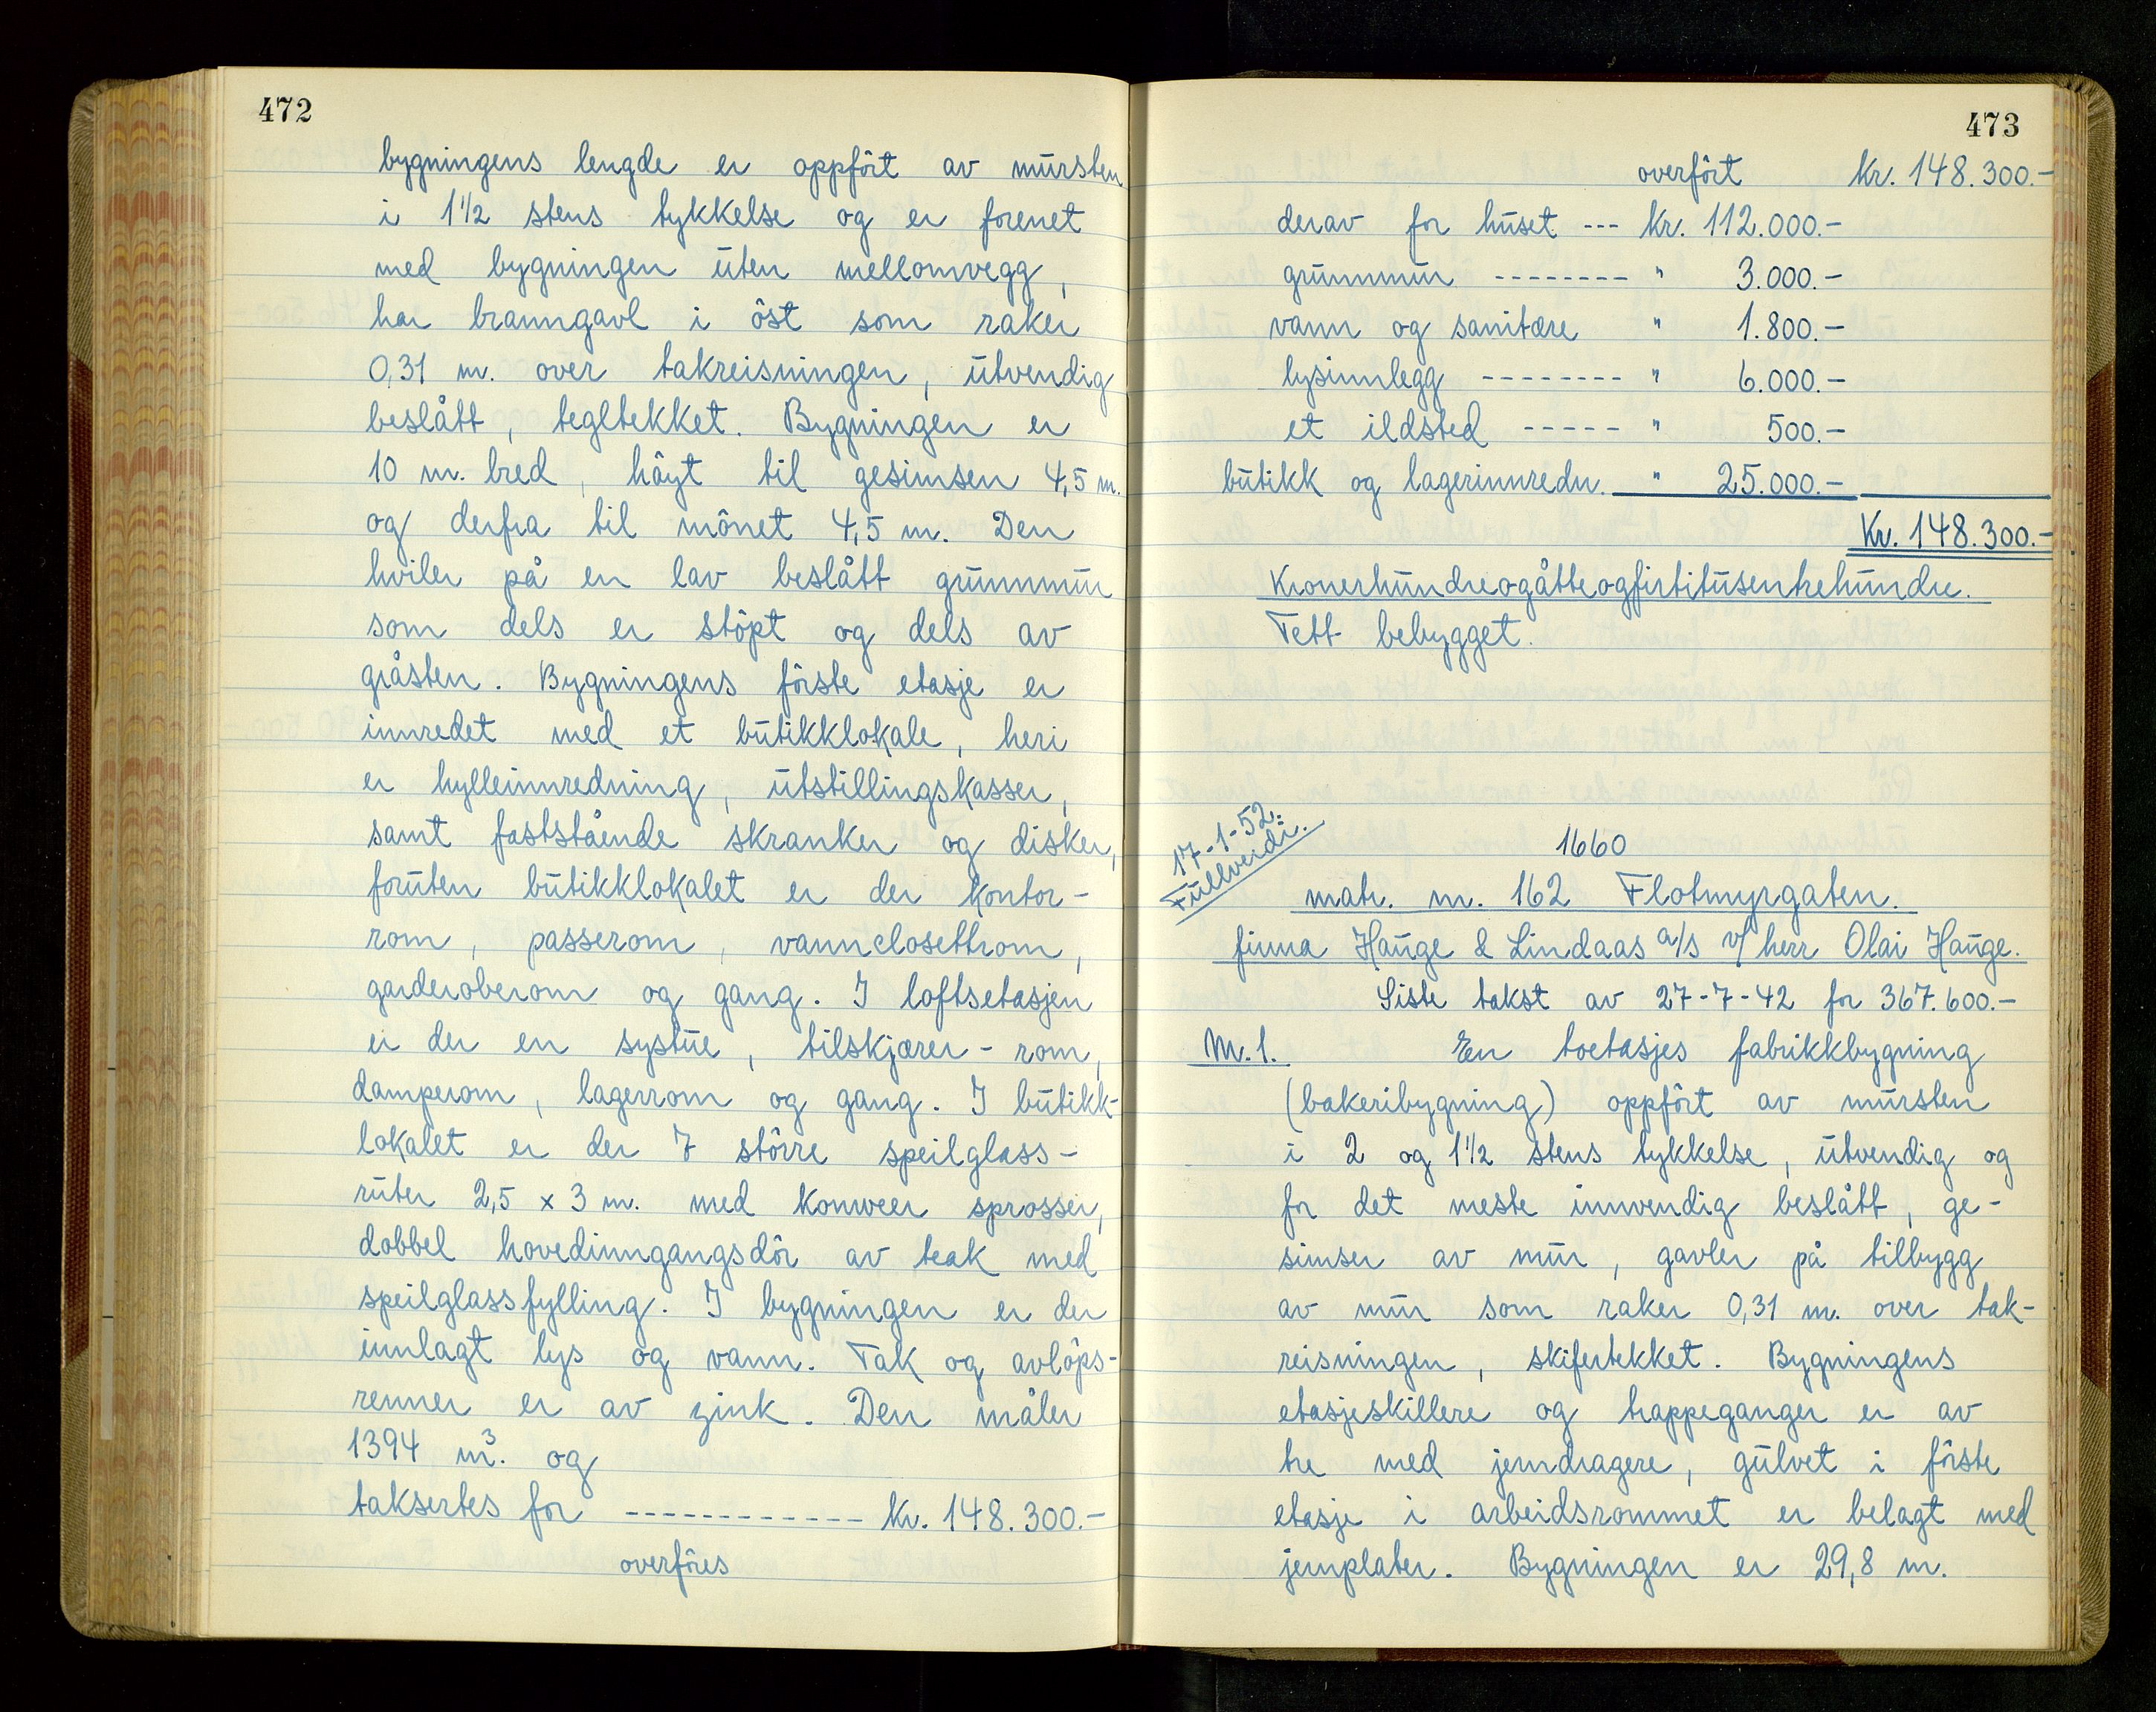 472
bygningens lengde er oppført av mursten
i 1 1/2 stens tykkelse og er forenet
med bygningen uten mellomvegg,
har branngavl i øst som raker
0,31 m. over takreisningen, utvendig
beslått, tegltekket. Bygningen er
10 m. bred, høyt til gesimsen 4,5 m.
og derfra til mønet 4,5 m. Den
hviler på en lav beslått grunnmur
som dels er støpt og dels av
gråsten. Bygningens første etasje er
innredet med et butikklokale, heri
er hylleinnredning, utstillingskasser,
samt faststående skranker og disker,
foruten butikklokalet er der kontor-
rom, passerom, vannclosettrom,
garderoberom og gang. I loftsetasjen
er der en systue, tilskjærer-rom,
damperom, lagerrom og gang. I butikk-
lokalet er der 7 større speilglass-
ruter 2,5 x 3 m. med konweer sprosser,
dobbel hovedinngangsdør av teak med
speilglassfylling. I bygningen er der
innlagt lys og vann. Tak og avløps-
renner er av zink. Den måler
1394 m³. og
taksertes for ------------ Kr. 148.300.-
overføres
473
overført Kr. 148.300.-
derav for huset --- Kr. 112.000.-
grunnmur -------- " 3.000.-
vann og sanitære " 1.800.-
lysinnlegg -------- " 6.000.-
et ildsted ----- " 500.-
butikk og lagerinnredn. " 25.000.-
Kr. 148.300.-
Kronerhundreogåtteogførtitusentrehundre.
Tett bebygget.
17-1-52.
Fullverdi.
1660
matr. nr. 162 Flotmyrgaten.
firma Hauge & Lindaas a/s v/ herr Olai Hauge.
Siste takst av 27-7-42 for 367.600.-
M. 1. En toetasjes fabrikkbygning
(bakeribygning) oppført av mursten
i 2 og 1 1/2 stens tykkelse, utvendig og
for det meste innvendig beslått, ge-
simser av mur, gavler på tilbygg
av mur som raker 0,31 m. over tak-
reisningen, skifertekket. Bygningens
etasjeskillere og trappeganger er av
tre med jerndragere, gulvet i første
etasje i arbeidsrommet er belagt med
jernplater. Bygningen er 29,8 m.